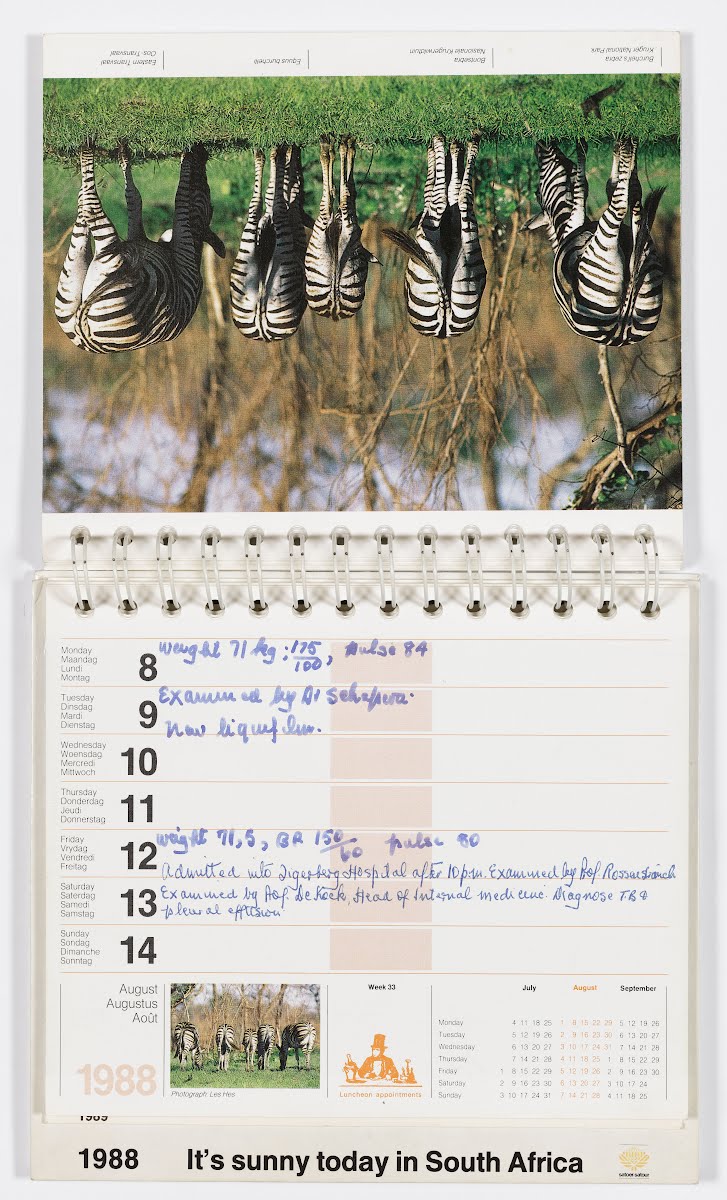 Burchell's zebra
Kruger National Park
Bontsebra
Nasionale Krugerwildtuin
Equus burchelli
Eastern Transvaal
Oos-Transvaal
Monday
Maandag
Lundi
Montag
8
Weight 71 kg; 175/100, pulse 84
Tuesday
Dinsdag
Mardi
Dienstag
9
Examined by Dr
Now
Wednesday
Woensdag
Mercredi
Mittwoch
10
Thursday
Donderdag
Jeudi
Donnerstag
11
Friday
Vrydag
Vendredi
Freitag
12
Weight 71,5, BP 150/60 pulse 80
Admitted into Tigerberg Hospital after 10 p.m. Examined by Prof.
Saturday
Saterdag
Samedi
Samstag
13
Examined by Prof. De Kock, Head of Internal medicine. Diagnose TB &
pleural effusion
Sunday
Sondag
Dimanche
Sonntag
14
August
Augustus
Août
1988
Photograph: Les Hes
Week 33
Luncheon appointments
July August September
Monday 4 11 18 25 1 8 15 22 29 5 12 19 26
Tuesday 5 12 19 26 2 9 16 23 30 6 13 20 27
Wednesday 6 13 20 27 3 10 17 24 31 7 14 21 28
Thursday 7 14 21 28 4 11 18 25 1 8 15 22 29
Friday 1 8 15 22 29 5 12 19 26 2 9 16 23 30
Saturday 2 9 16 23 30 6 13 20 27 3 10 17 24
Sunday 3 10 17 24 31 7 14 21 28 4 11 18 25
1989
1988 It's sunny today in South Africa
satoer·satour